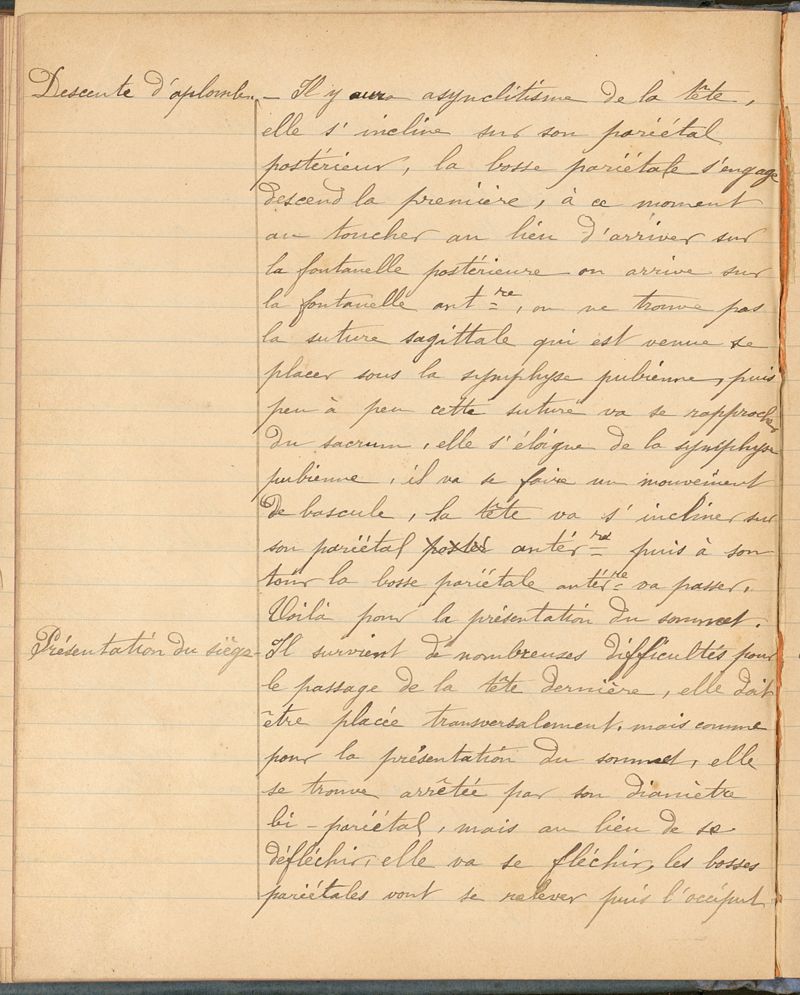 Descente d'aplomb. – Il y aura asynclitisme de la tête,
elle s'incline sur son pariétal
postérieur, la bosse pariétale s'engage
descend la première, à ce moment
au toucher au lieu d'arriver sur
la fontanelle postérieure on arrive sur
la fontanelle antre, on ne trouve pas
la suture sagittale qui est venue se
placer sous la symphyse pubienne, puis
peu à peu cette suture va se rapprocher
du sacrum, elle s'éloigne de la symphyse
pubienne, il va se faire un mouvement
de bascule, la tête va s'incliner sur
son pariétal postér antérre puis à son
tour la bosse pariétale antérre va passer.
Voilà pour la présentation du sommet.
Présentation du siège – Il survient de nombreuses difficultés pour
le passage de la tête dernière, elle doit
être placée transversalement, mais comme
pour la présentation du sommet, elle
se trouve arrêtée par son diamètre
bi-pariétal, mais au lieu de se
défléchir, elle va se fléchir, les bosses
pariétales vont se relever puis l'occiput